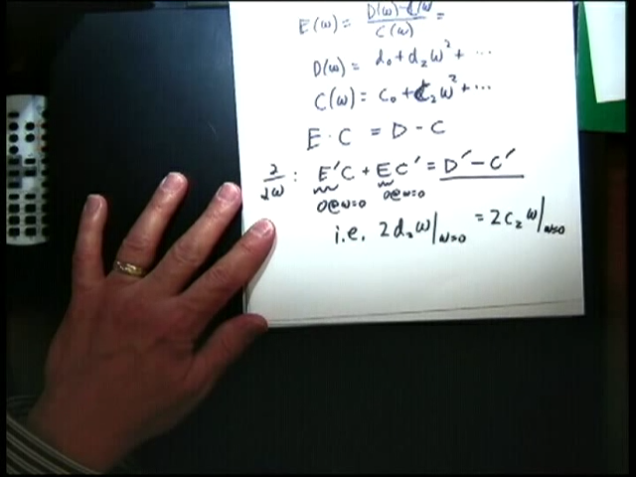 E(ω) = D(ω) - C(ω) / C(ω) =
D(ω) = d₀ + d₂ω² + ...
C(ω) = C₀ + C₂ω² + ...
E · C = D - C
∂/∂ω : E′C + EC′ = D′ - C′
0@ω=0 0@ω=0
i.e. 2d₂ω|ω=0 = 2C₂ω|ω=0